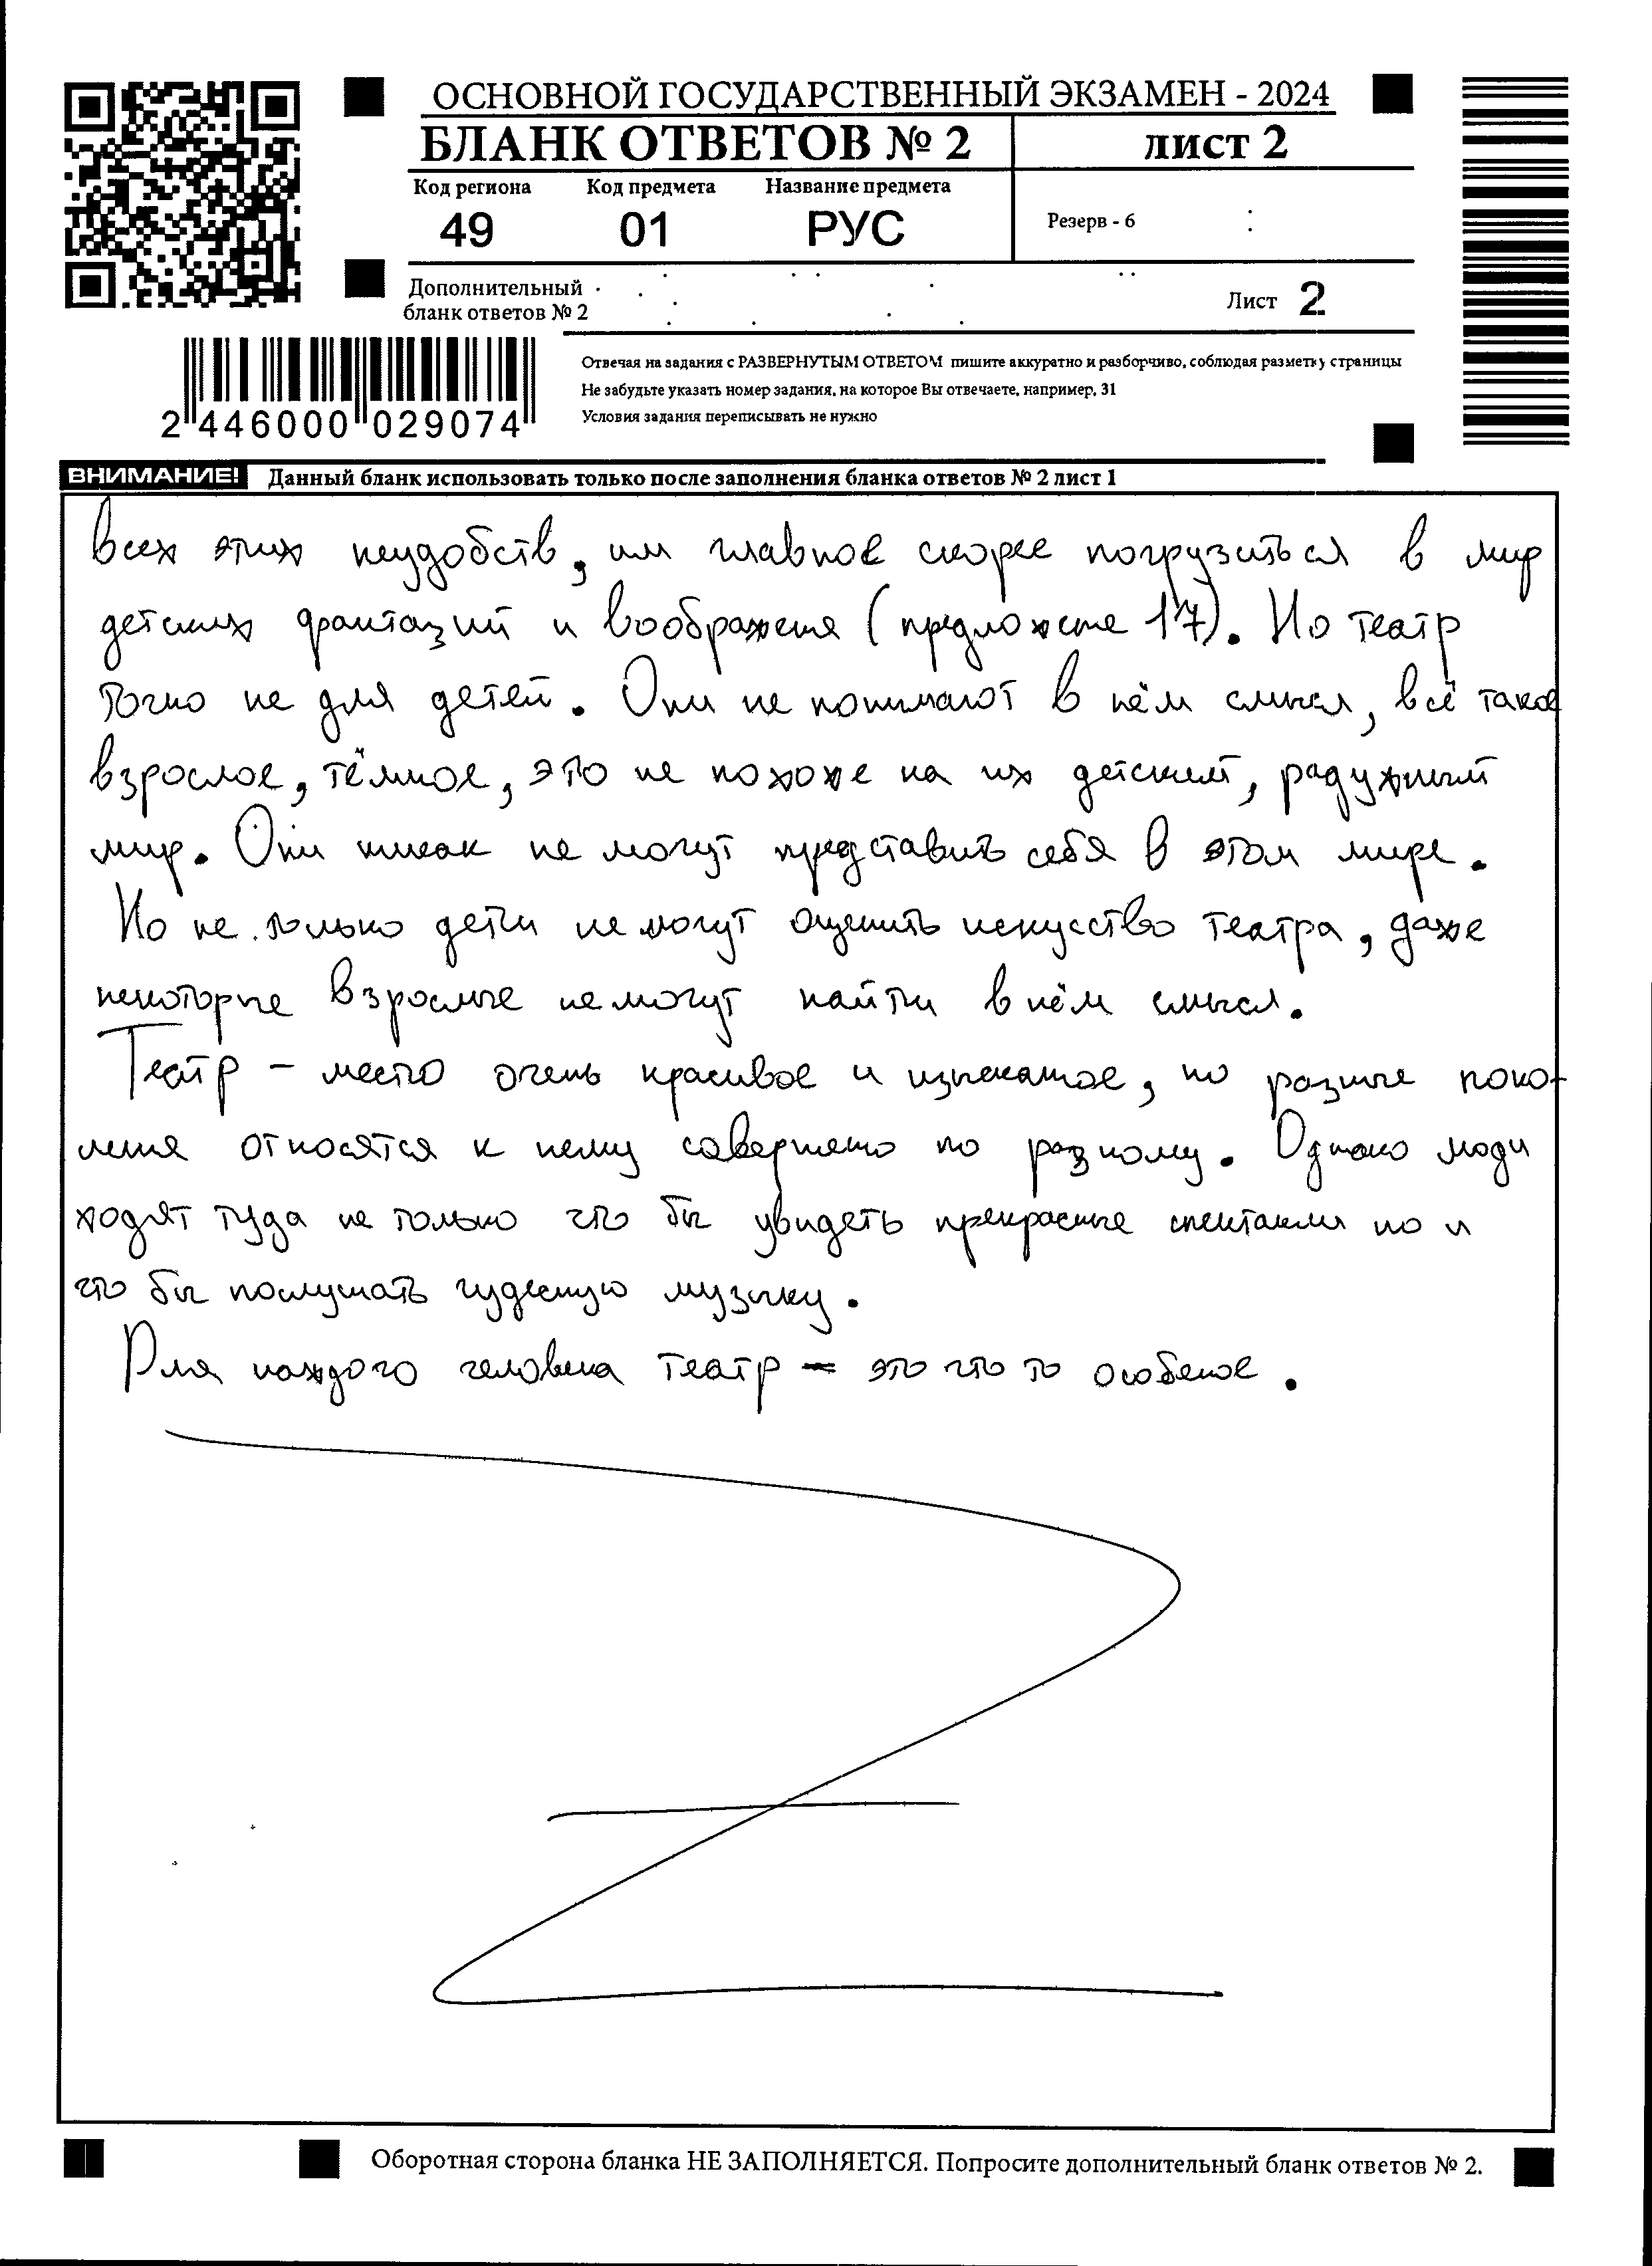 ОСНОВНОЙ ГОСУДАРСТВЕННЫЙ ЭКЗАМЕН - 2024
БЛАНК ОТВЕТОВ № 2
лист 2
Код региона Код предмета Название предмета
49 01 РУС
Резерв - 6
Дополнительный
бланк ответов № 2
Лист 2
Отвечая на задания с РАЗВЕРНУТЫМ ОТВЕТОМ пишите аккуратно и разборчиво, соблюдая разметку страницы
Не забудьте указать номер задания, на которое Вы отвечаете, например, 31
Условия задания переписывать не нужно
2 446000 029074
ВНИМАНИЕ! Данный бланк использовать только после заполнения бланка ответов № 2 лист 1
всех этих неудобств, им главное скорее погрузиться в мир
детских фантазий и воображения (предложение 17). Но театр
точно не для детей. Они не понимают в нём смысл, всё такое
взрослое, тёмное, это не похоже на их детский, радужный
мир. Они никак не могут представить себя в этом мире.
Но не только дети не могут оценить искусство театра, даже
некоторые взрослые не могут найти в нём смысл.
Театр – место очень красивое и изысканое, но разные поко-
ления относятся к нему совершено по разному. Однако люди
ходят туда не только что бы увидеть прекрасные спектакли но и
что бы послушать чудесную музыку.
Для каждого человека театр – это что то особеное.
Оборотная сторона бланка НЕ ЗАПОЛНЯЕТСЯ. Попросите дополнительный бланк ответов № 2.